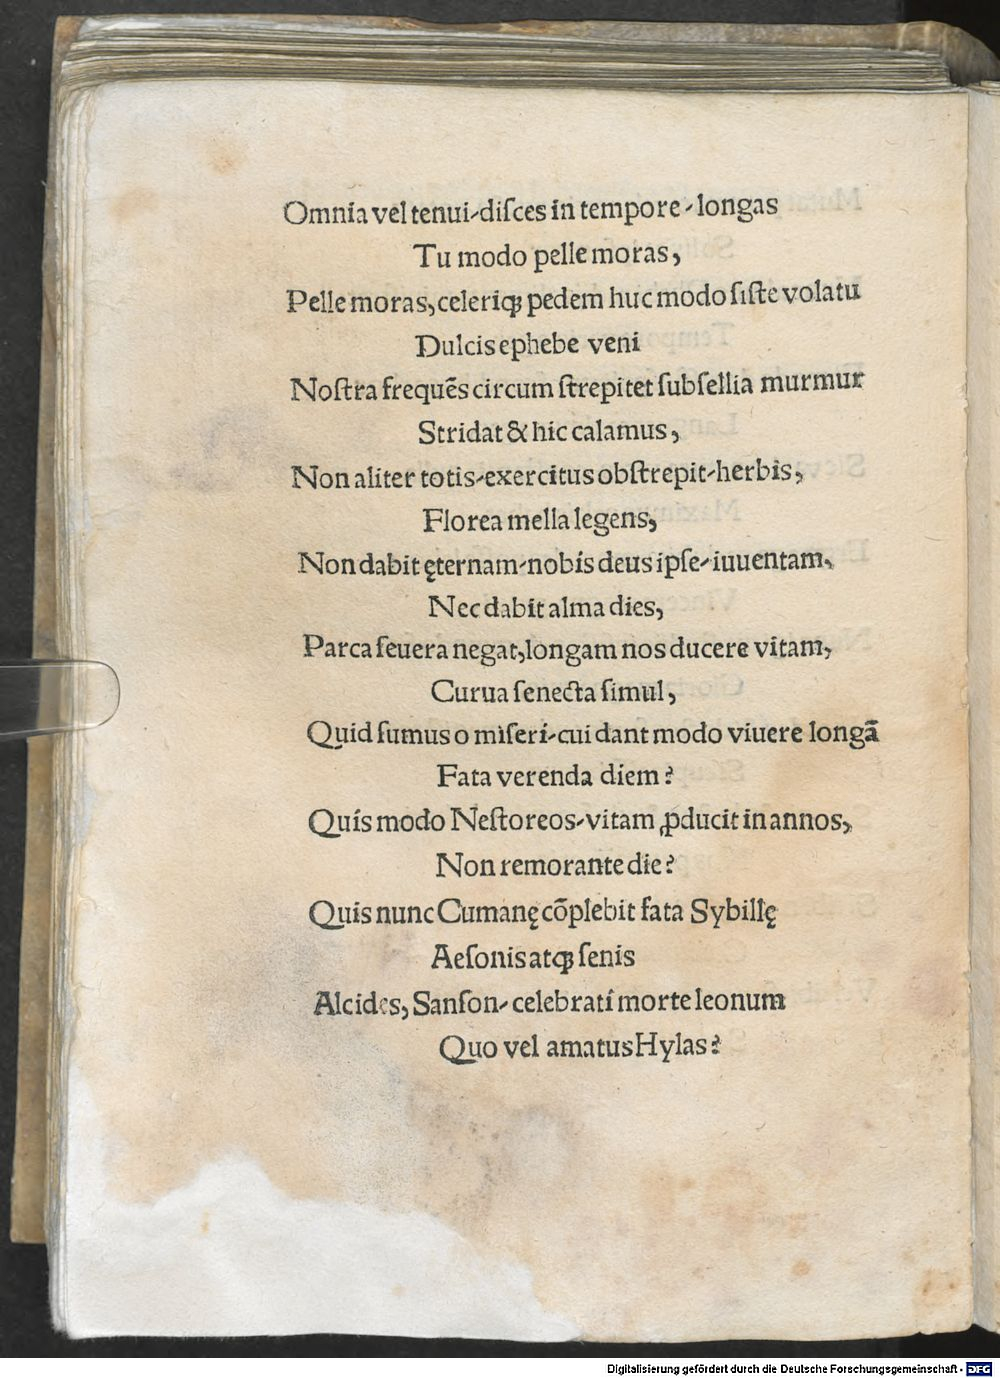 Omnia vel tenui-diſces in tempore-longas
Tu modo pelle moras,
Pelle moras, celeriqꝫ pedem huc modo ſiſte volatu
Dulcis ephebe veni
Noſtra frequẽs circum ſtrepitet ſubſellia murmur
Stridat & hic calamus,
Non aliter totis-exercitus obſtrepit-herbis,
Florea mella legens,
Non dabit ęternam-nobis deus ipſe-iuuentam,
Nec dabit alma dies,
Parca ſeuera negat, longam nos ducere vitam,
Curua ſenecta ſimul,
Quid ſumus o miſeri-cui dant modo viuere longã
Fata verenda diem?
Quis modo Neſtoreos-vitam ꝓducit in annos,
Non remorante die?
Quis nunc Cumanę cõplebit fata Sybillę
Aeſonis atqꝫ ſenis
Alcides, Sanſon-celebrati morte leonum
Quo vel amatus Hylas?
Digitalisierung gefördert durch die Deutsche Forschungsgemeinschaft - DFG